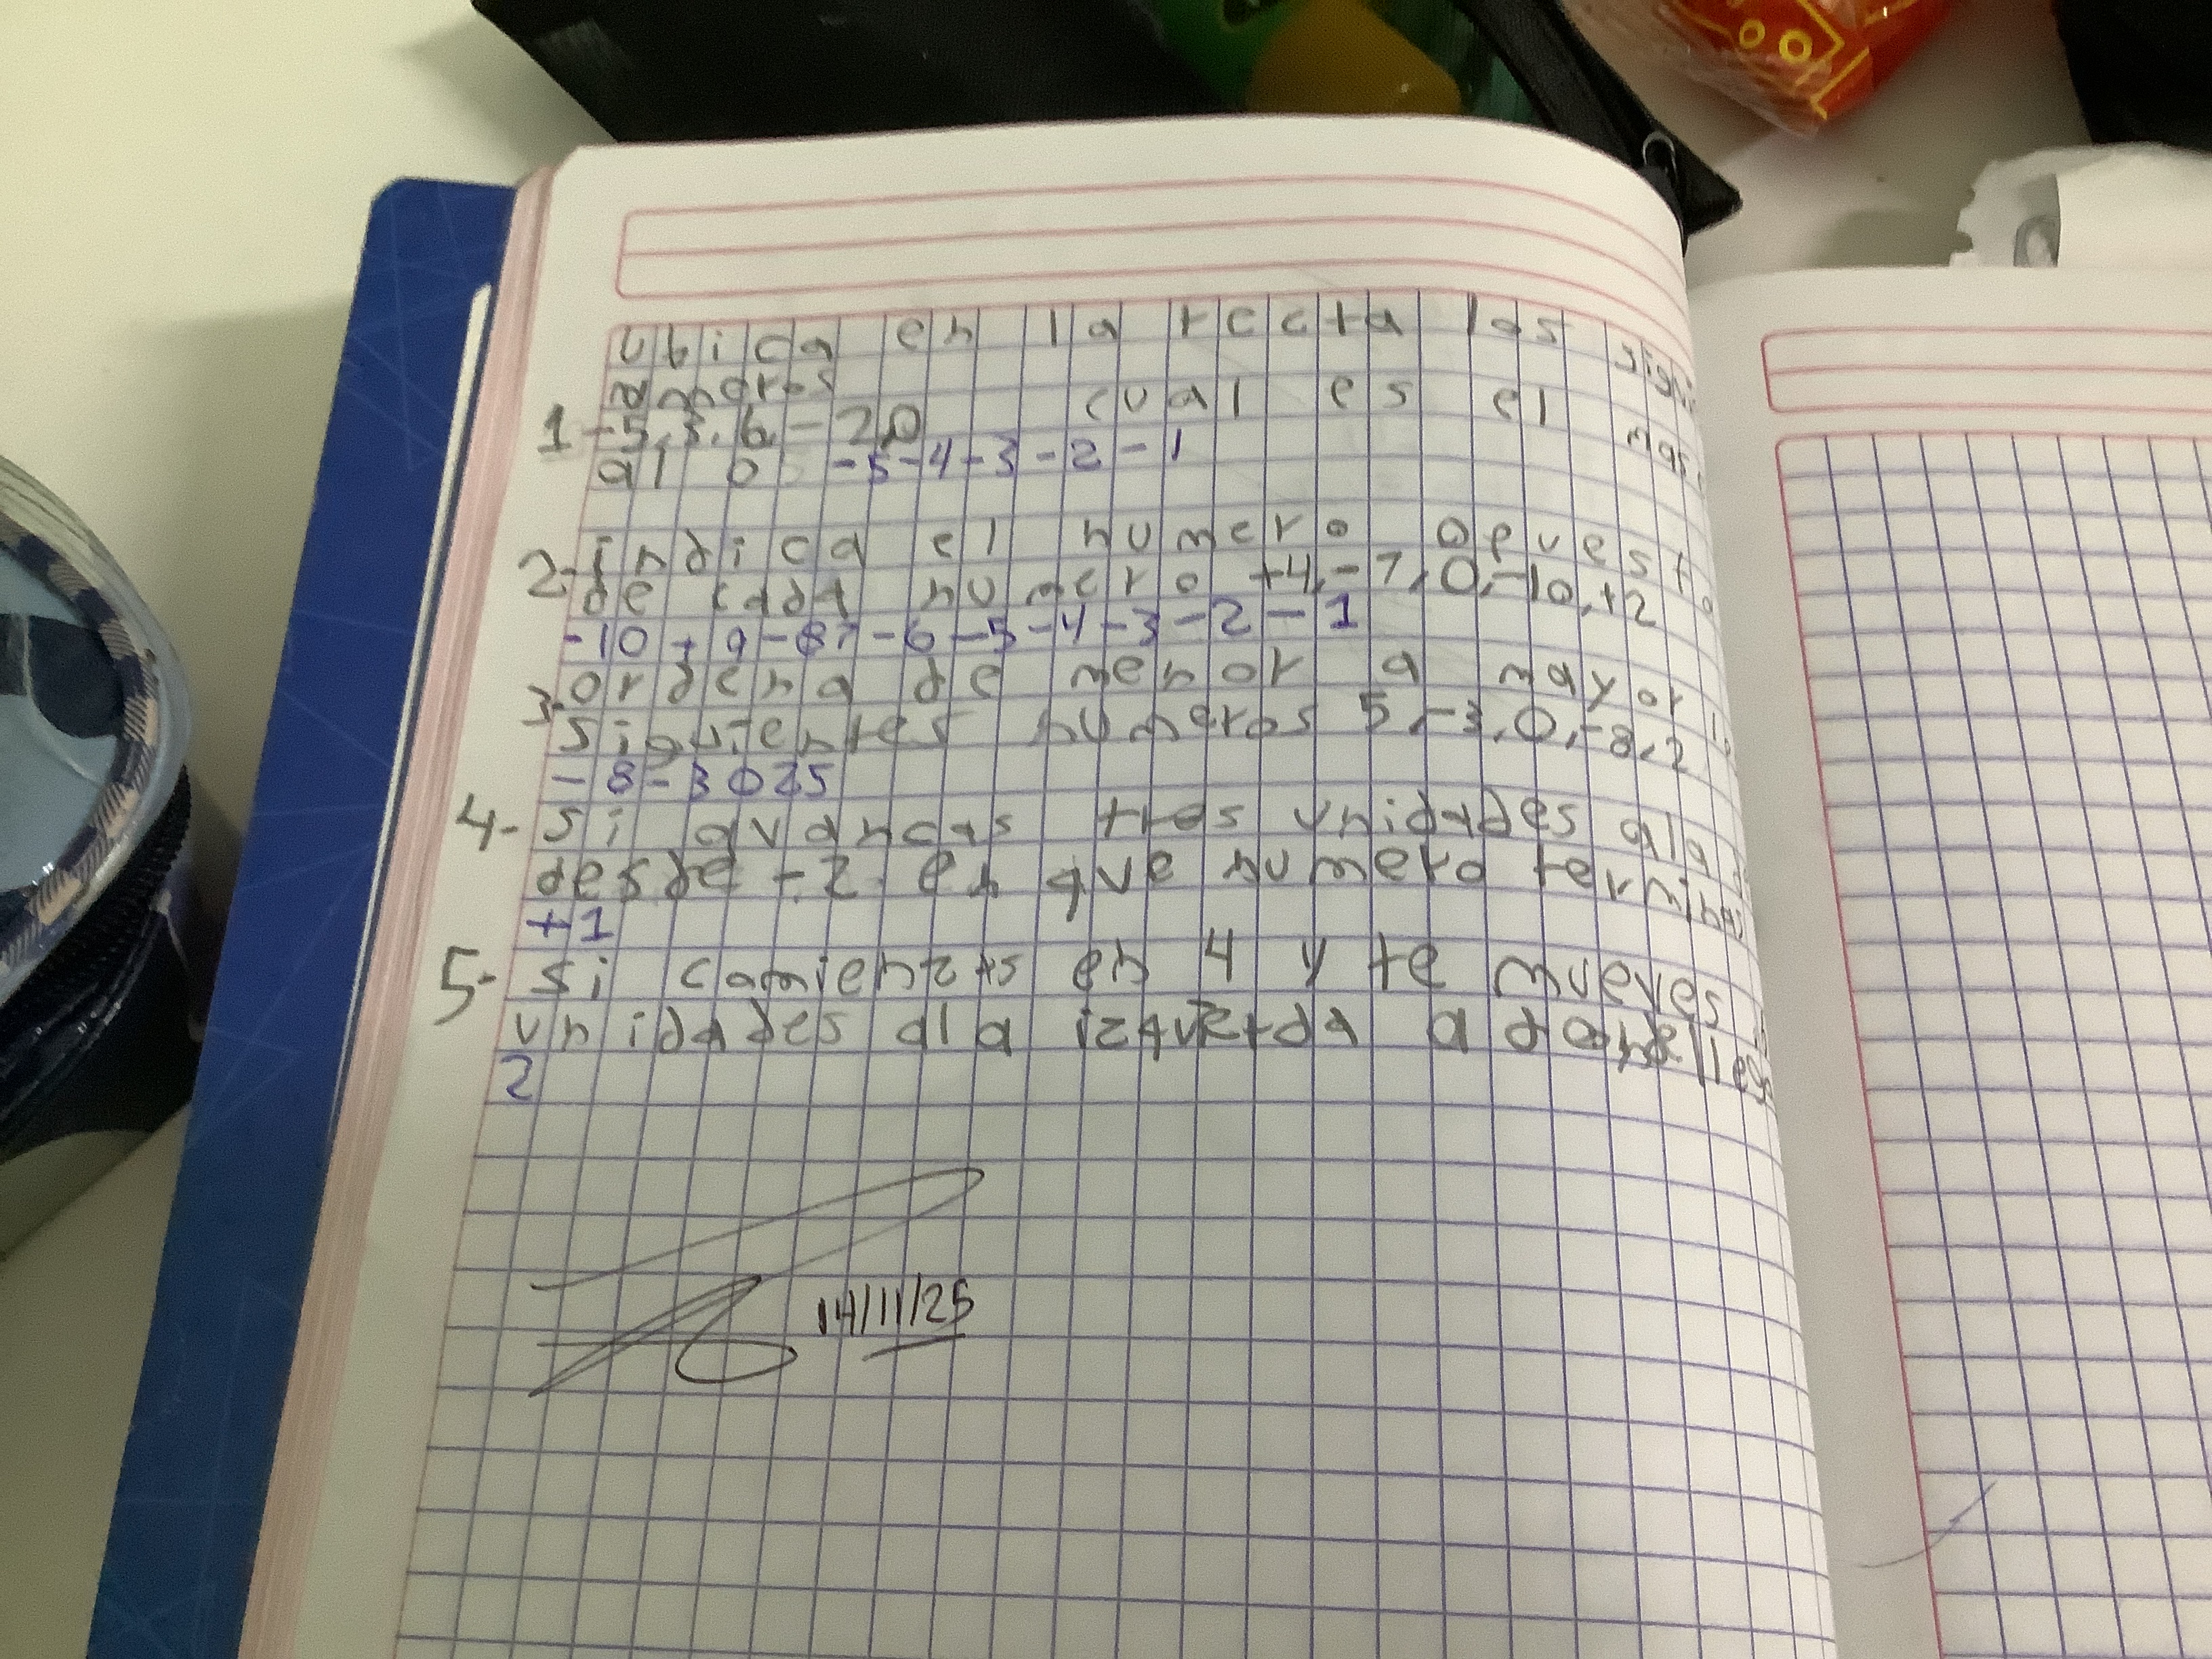 ubica en la recta los
numeros
1- -5, 3, 6, -2,0 cual es el mas
al 0 -5-4-3-2-1
2- indica el numero opuesto
de cada numero +4,-7,0,-10,+2
-10 -9-87-6-5-4-3-2-1
3- ordena de menor a mayor
siguientes numeros 5,-3,0,-8,2
-8-3025
4- si avancas tres unidades ala
desde -2 en que numero terminas
+1
5- si comienzas en 4 y te mueves
unidades ala izquierda a donde
2
14/11/25